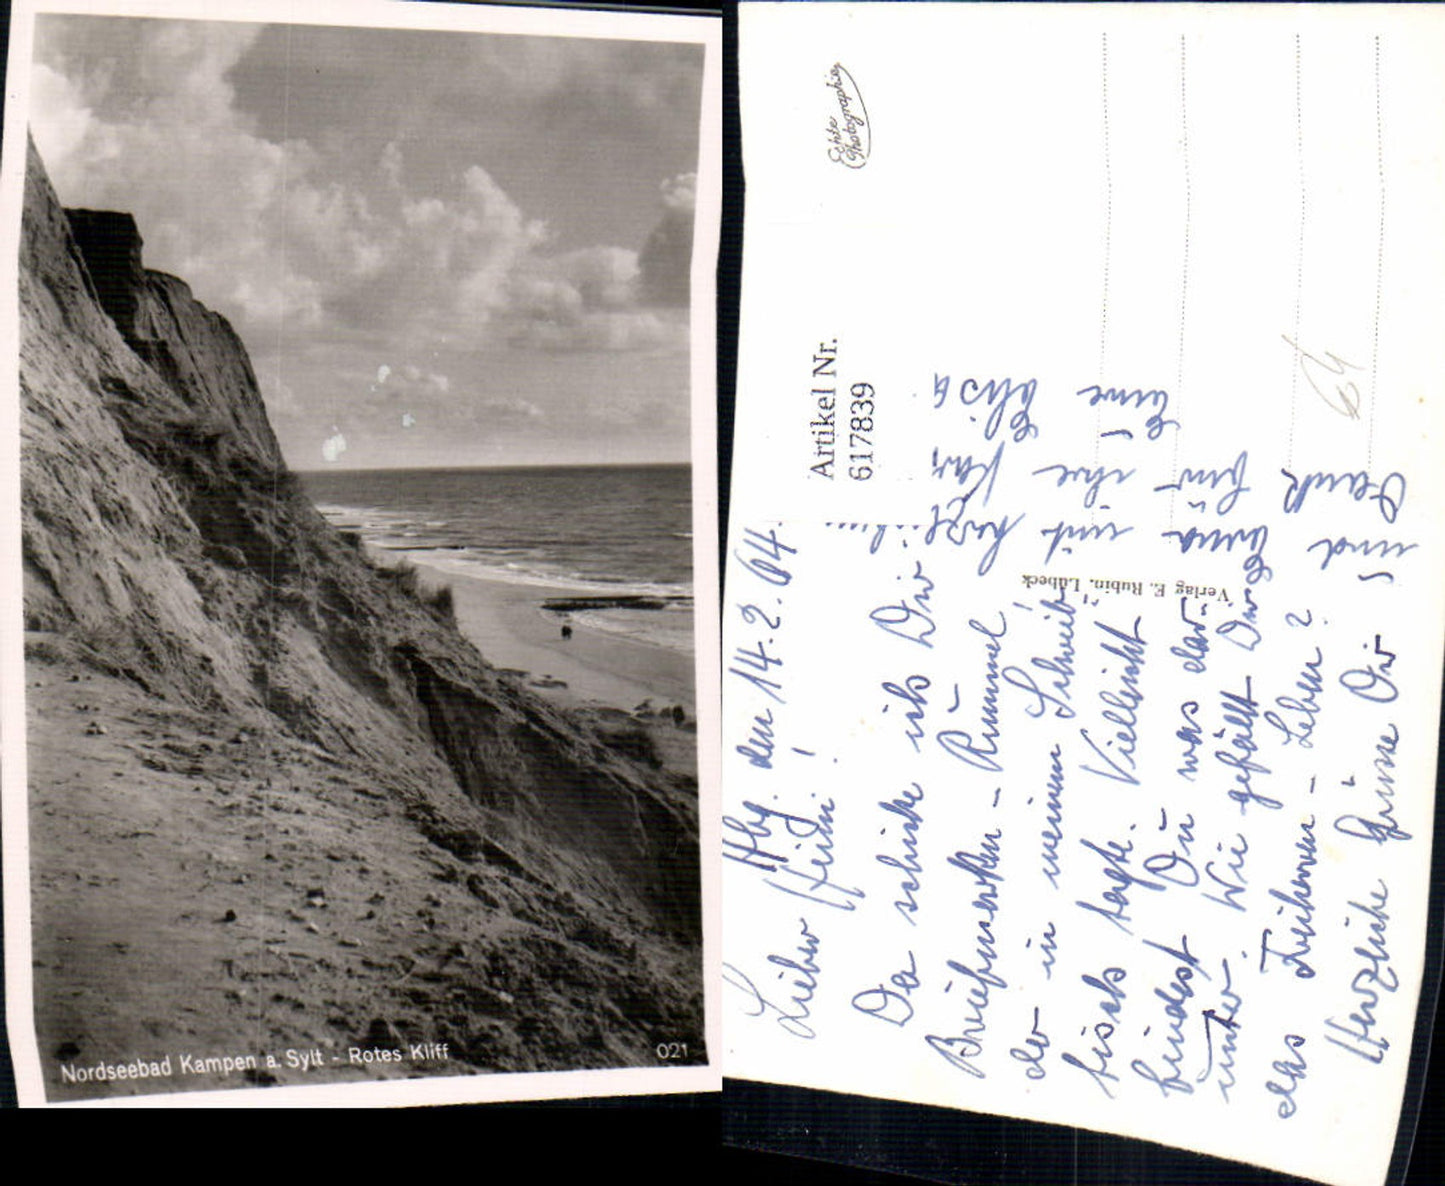 Nordseebad Kampen a. Sylt - Rotes Kliff
021
Echte
Photographie
Artikel Nr.
617839
Verlag E. Rubin, Lübeck
Hbg. den 14.2.64
Lieber Heini!
Da schicke ich Dir
Briefmarken - Rummel
der in meinem Schreib-
tisch lagte. Vielleicht
findest Du was dar-
unter. Wie gefällt Dir
das Leben?
Herzliche Grüsse Dir
und
Dank für
Eure
Elisa
64